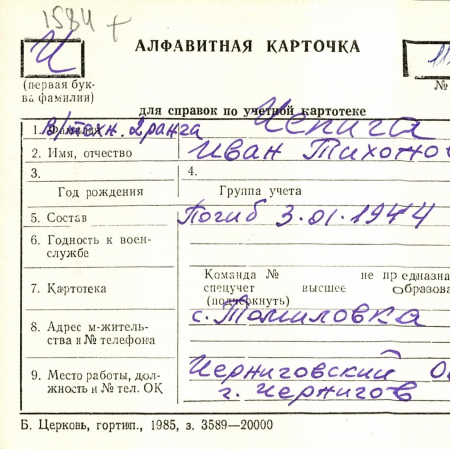 1584 +
И
АЛФАВИТНАЯ КАРТОЧКА
11
(первая бук-
ва фамилии)
№
для справок по учетной картотеке
1. Фамилия в/техн. 2 ранга Чепига
2. Имя, отчество Иван Тихонов
3. 4.
Год рождения Группа учета
5. Состав Погиб 3.01.1944
6. Годность к воен-
службе
Команда № не предназна
7. Картотека спецучет высшее образова
(подчеркнуть)
8. Адрес м-житель-
ства и № телефона с. Томиловка
9. Место работы, дол-
жность и № тел. ОК Черниговский О
г. Чернигов
Б. Церковь, гортип., 1985, з. 3589—20000